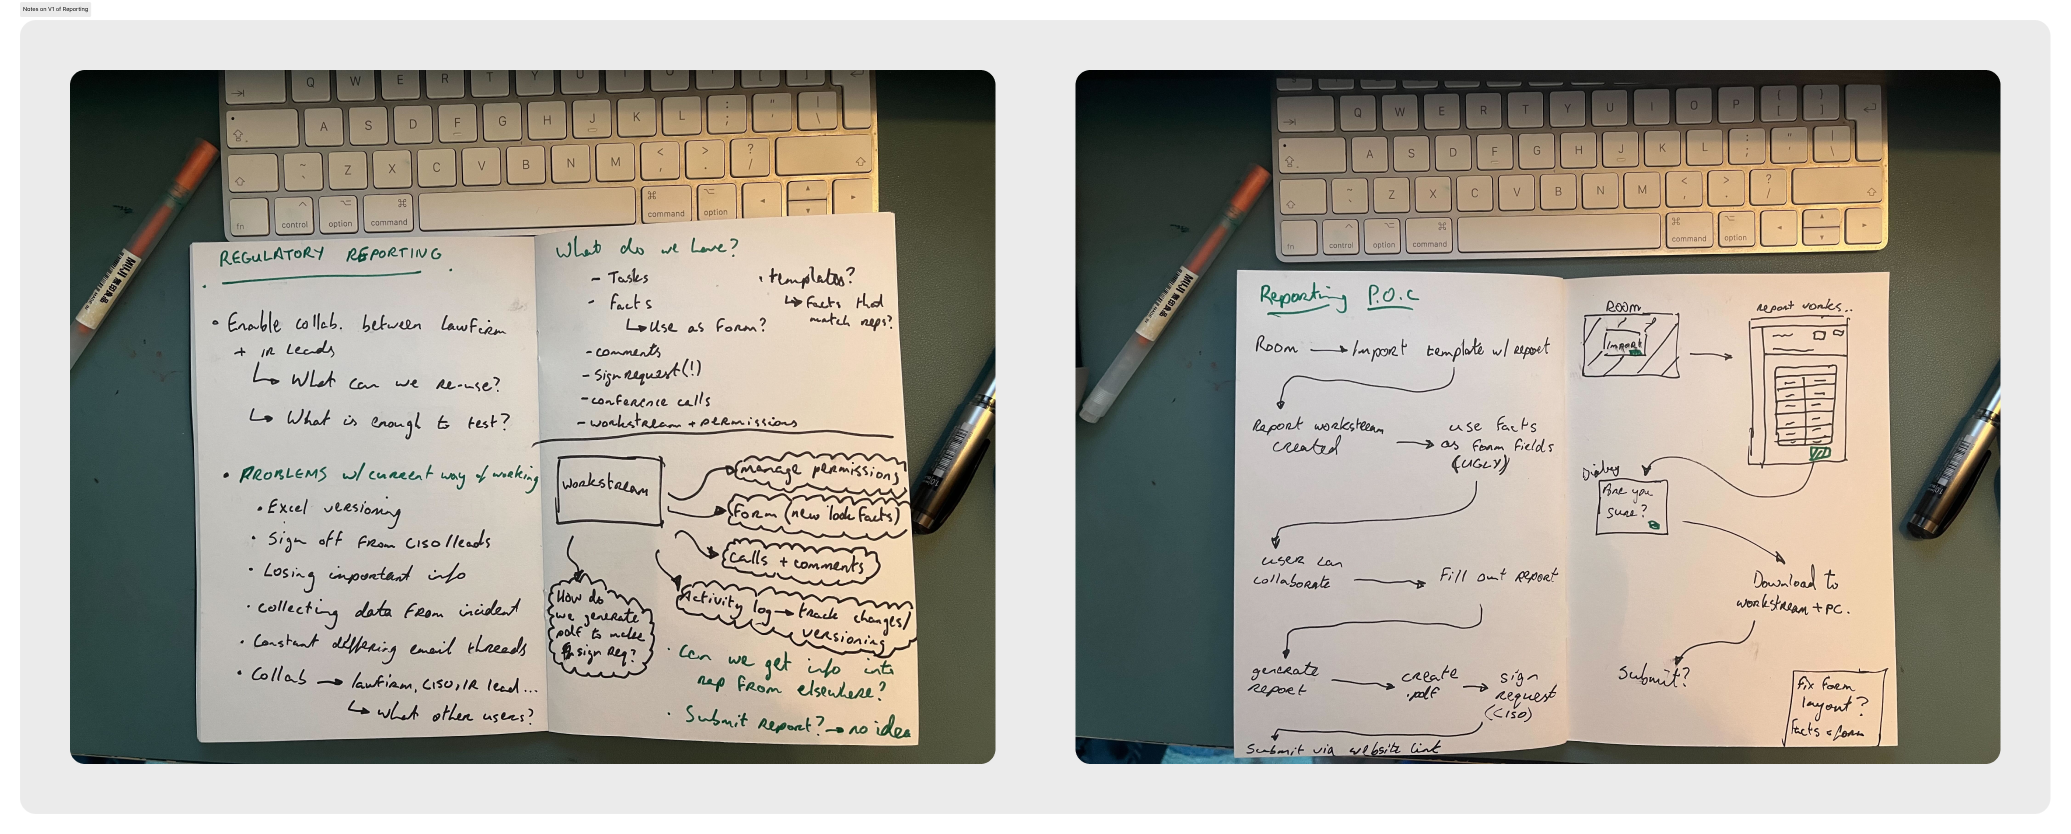 Notes on V1 of Reporting
REGULATORY REPORTING
• Enable collab. between lawfirm
+ IR leads
↳ What can we re-use?
↳ What is enough to test?
• PROBLEMS w/ current way of working
• Excel versioning
• Sign off from CISO/leads
• Losing important info
• collecting data from incident
• Constant differing email threads
• Collab → lawfirm, CISO, IR lead...
↳ what other users?
What do we have?
- Tasks
- Facts
↳ Use as form?
- comments
- Sign request (!)
- conference calls
- workstream + permissions
• templates?
↳ Facts that
match reps?
workstream
manage permissions
Form (new look facts)
calls + comments
Activity log → track changes/
versioning
How do
we generate
pdf to make
sign req?
• Can we get info into
rep from elsewhere?
• Submit report? → no idea
Reporting P.O.C
Room → Import template w/ report
Report workstream
created
→ use facts
as form fields
(UGLY)
user can
collaborate
→ Fill out report
generate
report
→ create
.pdf
→ sign
request
(CISO)
Submit via website link
ROOM
IMPORT
report works..
Dialog
Are you
sure?
Download to
workstream + PC.
Submit?
fix form
layout?
facts = form
fn
control
option
command
command
option
Q W E R T Y U I
A S D F G H J K L
Z X C V B N M
MUJI 無印良品
fn
control
option
command
command
option
Q W E R T Y U I O P
A S D F G H J K L
Z X C V B N M
MUJI 無印良品